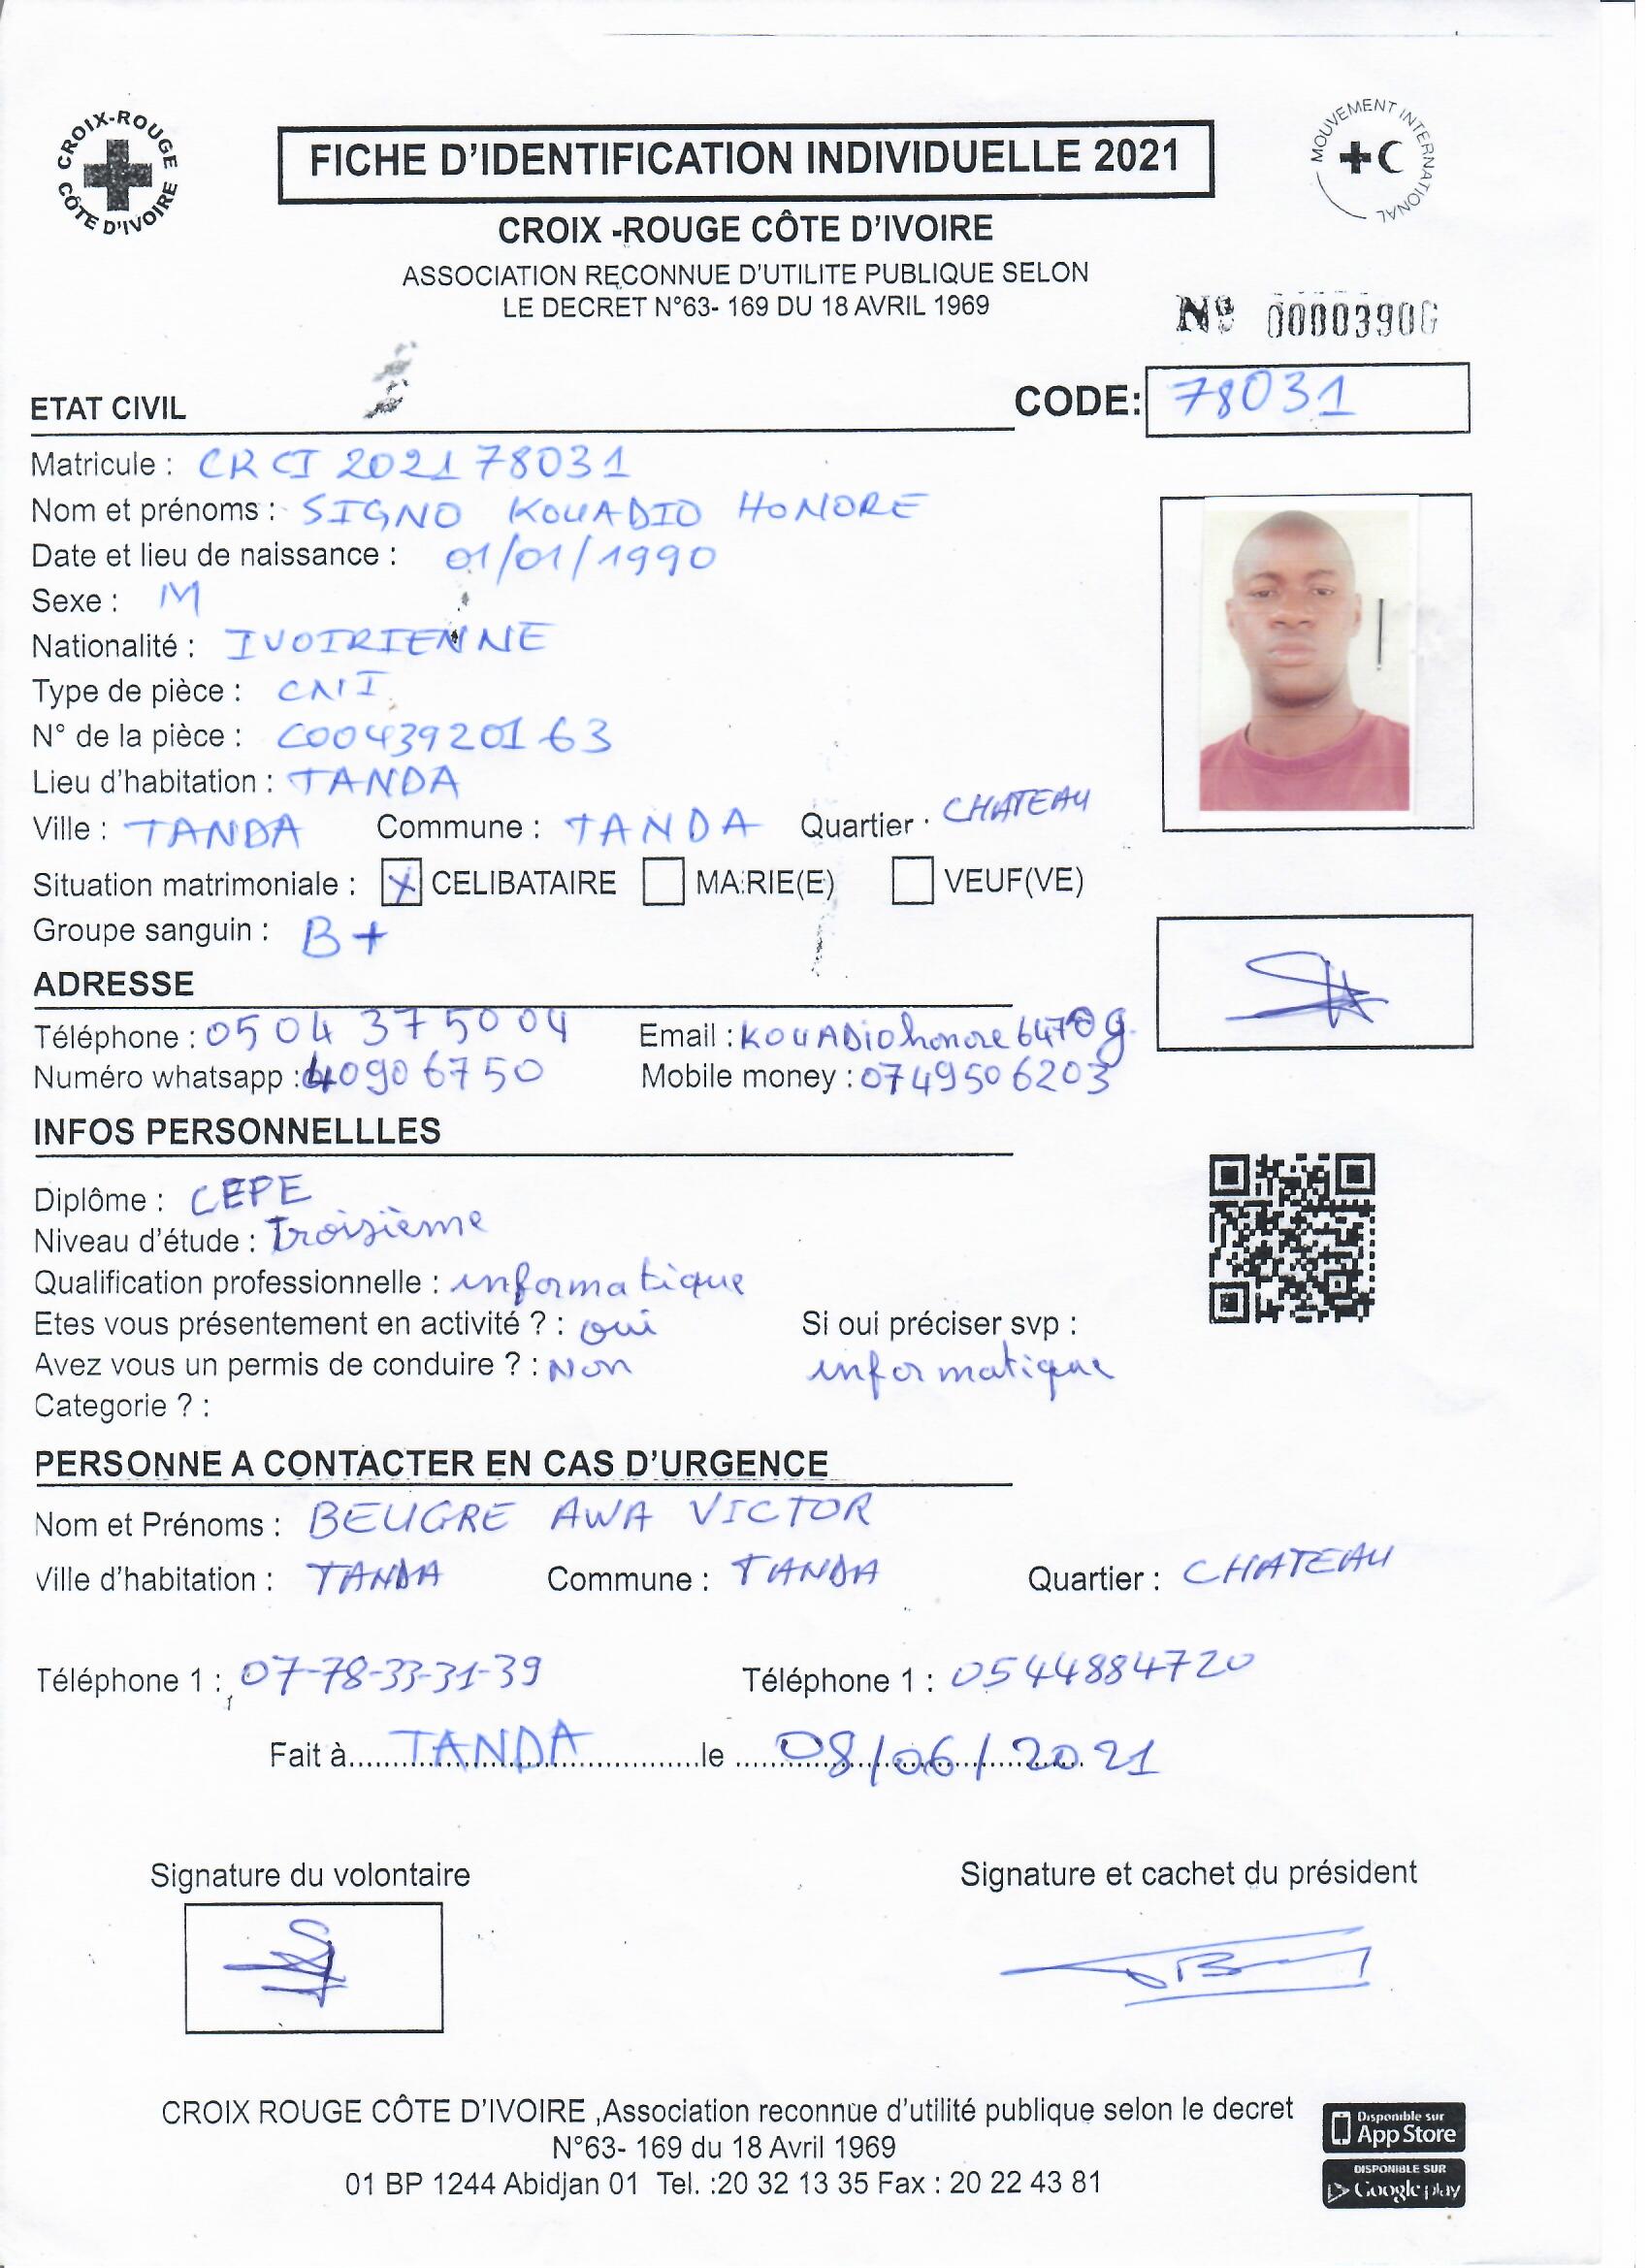 CROIX-ROUGE CÔTE D'IVOIRE
MOUVEMENT INTERNATIONAL
FICHE D'IDENTIFICATION INDIVIDUELLE 2021
CROIX -ROUGE CÔTE D'IVOIRE
ASSOCIATION REÇONNUE D'UTILITE PUBLIQUE SELON
LE DECRET N°63- 169 DU 18 AVRIL 1969
Nº 00003906
ETAT CIVIL
CODE: 78031
Matricule : CRCI 2021 78031
Nom et prénoms : SIGNO KOUADIO HONORE
Date et lieu de naissance : 01/01/1990
Sexe : M
Nationalité : IVOIRIENNE
Type de pièce : CNI
N° de la pièce : C0043920163
Lieu d'habitation : TANDA
Ville : TANDA Commune : TANDA Quartier : CHATEAU
Situation matrimoniale : X CELIBATAIRE MARIE(E) VEUF(VE)
Groupe sanguin : B+
ADRESSE
Téléphone : 05 04 37 50 04 Email : KOUADiohonore
Numéro whatsapp : 40906750 Mobile money : 0749506203
INFOS PERSONNELLLES
Diplôme : CEPE
Niveau d'étude : Troisième
Qualification professionnelle : informatique
Etes vous présentement en activité ? : oui Si oui préciser svp :
Avez vous un permis de conduire ? : Non informatique
Categorie ? :
PERSONNE A CONTACTER EN CAS D'URGENCE
Nom et Prénoms : BEUGRE AWA VICTOR
Ville d'habitation : TANDA Commune : TANDA Quartier : CHATEAU
Téléphone 1 : 07-78-33-31-39 Téléphone 1 : 0544884720
Fait à TANDA le 08/06/2021
Signature du volontaire Signature et cachet du président
CROIX ROUGE CÔTE D'IVOIRE ,Association reconnue d'utilité publique selon le decret
N°63- 169 du 18 Avril 1969
01 BP 1244 Abidjan 01 Tel. :20 32 13 35 Fax : 20 22 43 81
Disponible sur
App Store
DISPONIBLE SUR
Google play